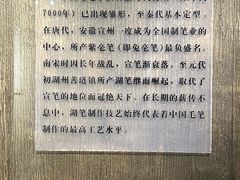 7000年）已出现雏形，至秦代基本定型
在唐代，安徽宣州一度成为全国制笔业的
中心，所产紫毫笔（即兔毫笔）最负盛名，
南宋时因长年战乱，宣笔渐衰落。至元代
初湖州善琏镇所产湖笔继而崛起，取代了
宣笔的地位而冠绝天下。在长期的薪传不
息中，湖笔制作技艺始终代表着中国毛笔
制作的最高工艺水平。